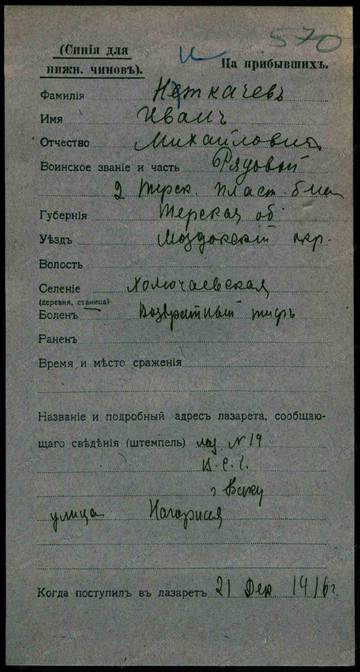 570
(Синія для
нижн. чиновъ).
На прибывшихъ.
Фамилія Неткачевъ
Имя Иванъ
Отчество Михайловичъ
Воинское званіе и часть Рядовой
2 Терск. Пласт. б-на
Губернія Терская об
Уѣздъ Моздокскій окр.
Волость
Селеніе
(деревня, станица)
Боленъ Возвратный тифъ
Раненъ
Время и мѣсто сраженія
Названіе и подробный адресъ лазарета, сообщаю-
щаго свѣдѣнія (штемпель) лаз N 19
В. С. Г.
г Баку
улица Нагорная
Когда поступил въ лазаретъ 21 Дек 1916 г